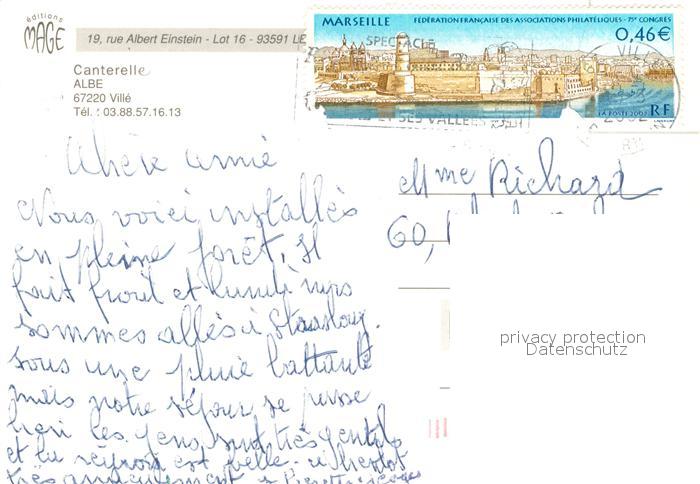 éditions
MAGE
19, rue Albert Einstein - Lot 16 - 93591 LE
Canterelle
ALBE
67220 Villé
Tél. : 03.88.57.16.13
MARSEILLE
FÉDÉRATION FRANÇAISE DES ASSOCIATIONS PHILATÉLIQUES - 75e CONGRÈS
0,46€
SPECTACLE
ET SES VALLÉES
VII
2002
LA POSTE 2002 RF
chère amie
Nous voici installés
en pleine forêt, il
fait froid et lundi nous
sommes allés à Strasbourg.
sous une pluie battante
mais notre séjour se passe
les gens sont très gentils
et la région est belle.
très amicalement
Mme Richard
60,
privacy protection
Datenschutz